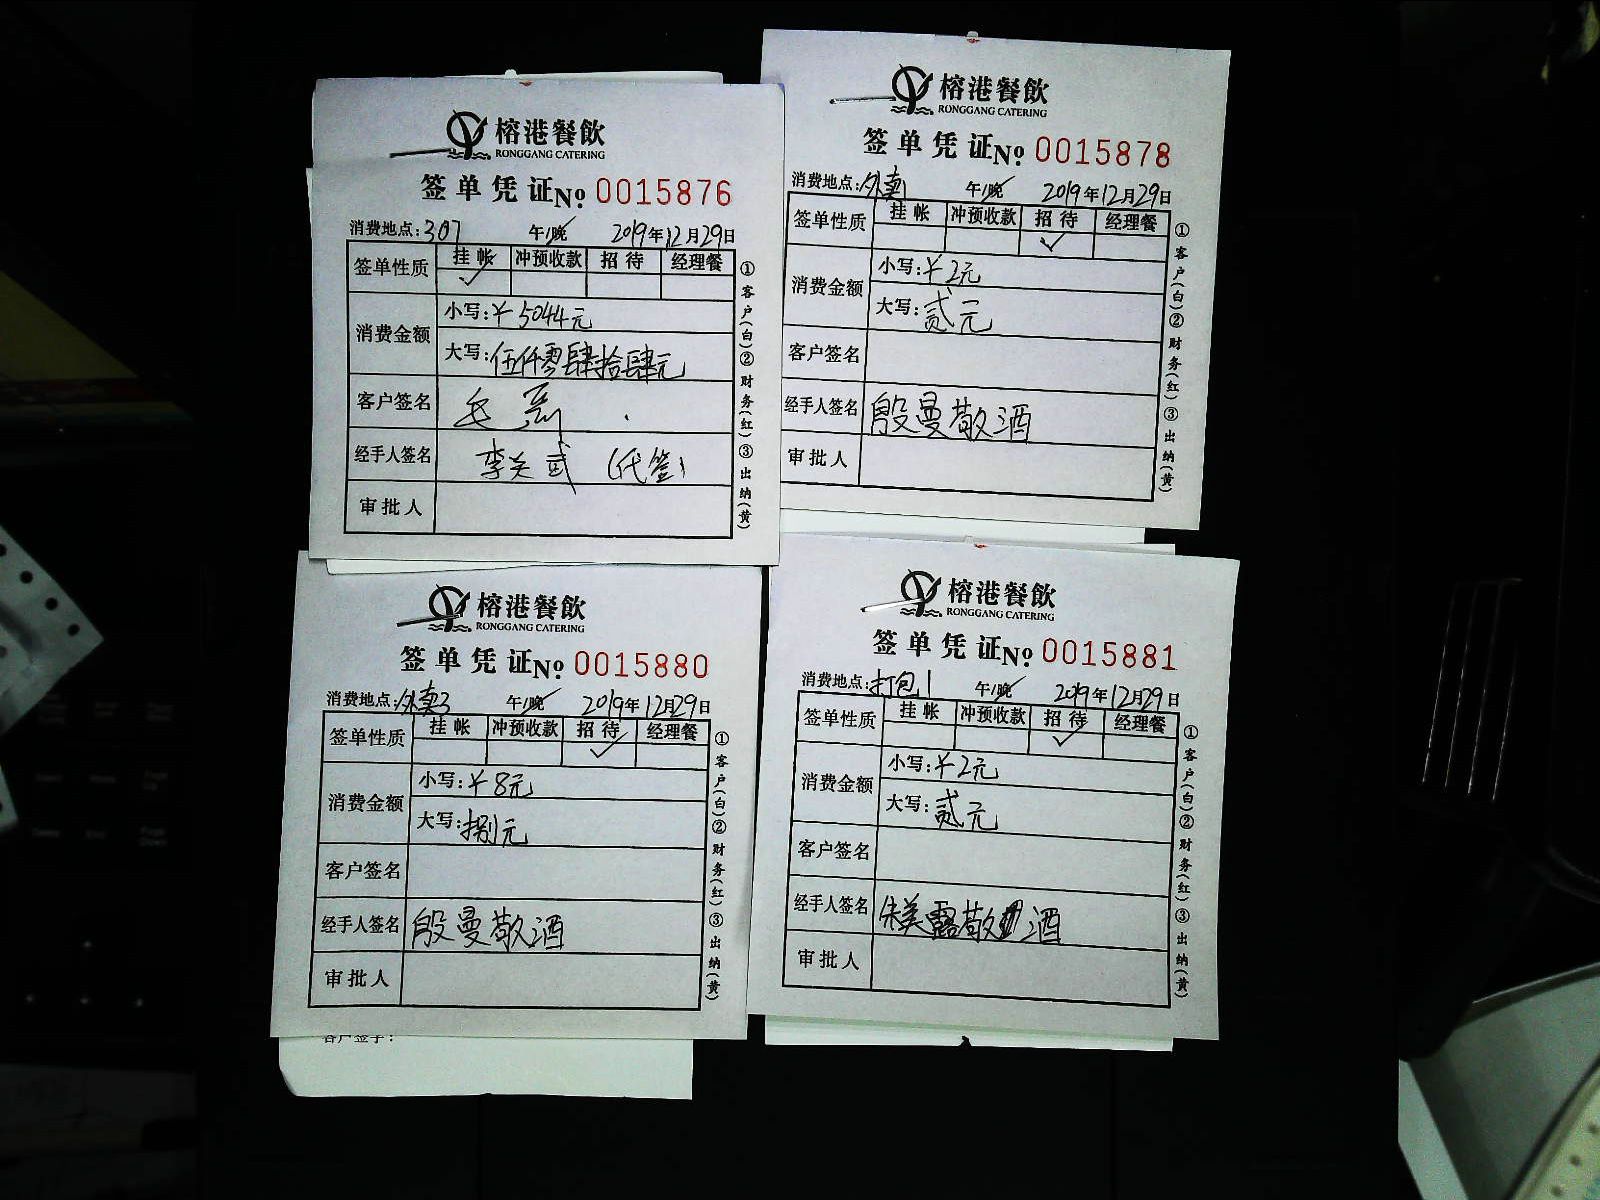 榕港餐飲
RONGGANG CATERING
签单凭证No 0015876
消费地点:307 午/晚 2019年12月29日
签单性质 挂帐 冲预收款 招待 经理餐
✓
消费金额
小写:¥5044元
大写:伍仟零肆拾肆元
客户签名
经手人签名 李关武(代签)
审批人
①客户(白)②财务(红)③出纳(黄)
榕港餐飲
RONGGANG CATERING
签单凭证No 0015878
消费地点:外卖1 午/晚 2019年12月29日
签单性质 挂帐 冲预收款 招待 经理餐
✓
消费金额
小写:¥2元
大写:贰元
客户签名
经手人签名 殷曼敬酒
审批人
①客户(白)②财务(红)③出纳(黄)
榕港餐飲
RONGGANG CATERING
签单凭证No 0015880
消费地点:外卖3 午/晚 2019年12月29日
签单性质 挂帐 冲预收款 招待 经理餐
✓
消费金额
小写:¥8元
大写:捌元
客户签名
经手人签名 殷曼敬酒
审批人
①客户(白)②财务(红)③出纳(黄)
客户签字:
榕港餐飲
RONGGANG CATERING
签单凭证No 0015881
消费地点:打包1 午/晚 2019年12月29日
签单性质 挂帐 冲预收款 招待 经理餐
✓
消费金额
小写:¥2元
大写:贰元
客户签名
经手人签名 朱美露敬酒
审批人
①客户(白)②财务(红)③出纳(黄)